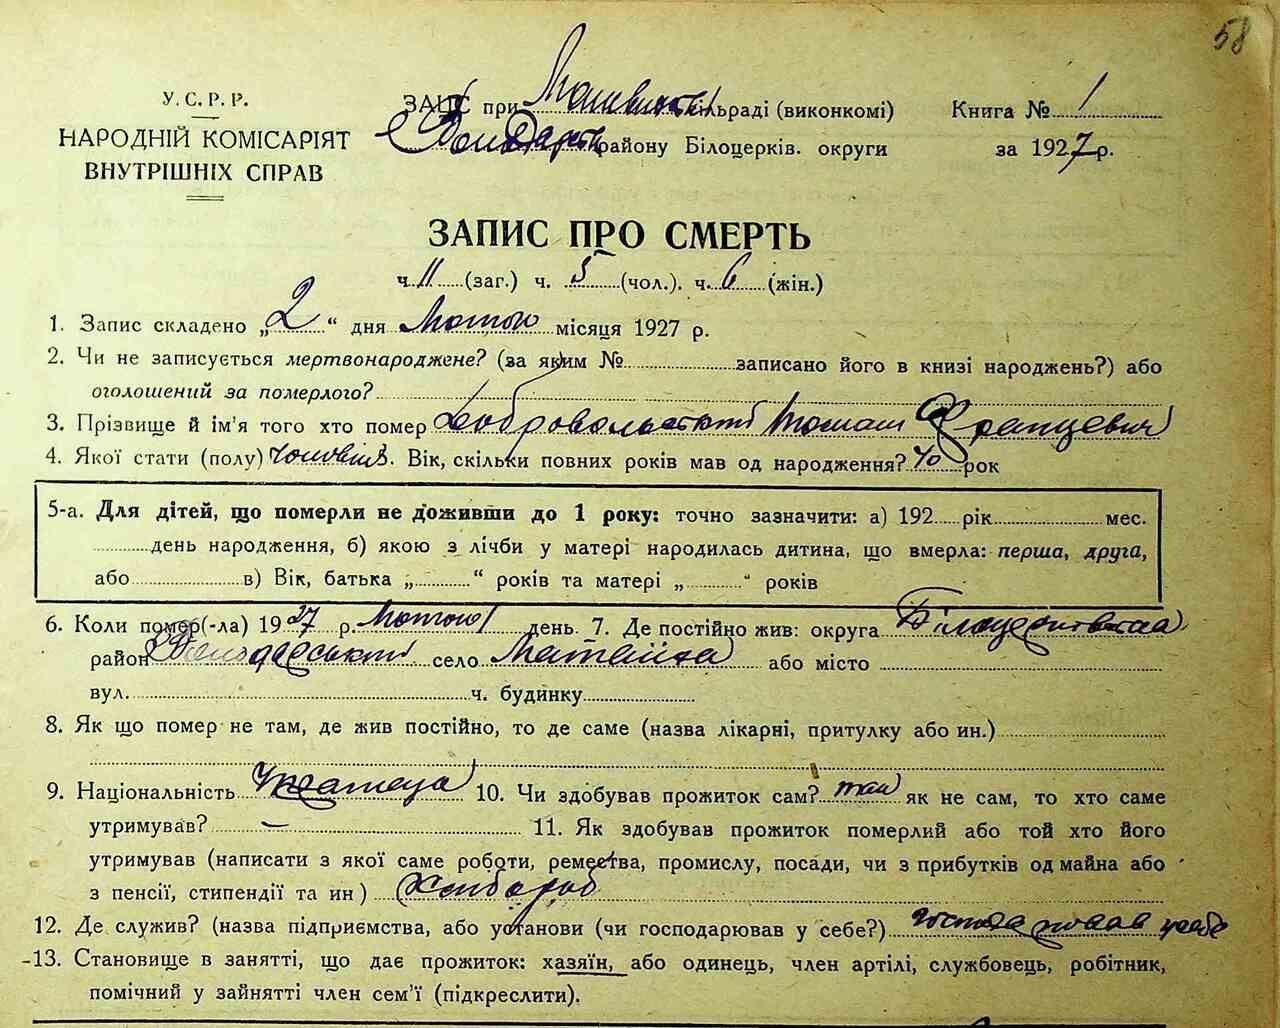 58
У. С. Р. Р.
НАРОДНІЙ КОМІСАРІЯТ
ВНУТРІШНІХ СПРАВ
ЗАПИС при сільраді (виконкомі)
району Білоцерків. округи
Книга № 1
за 1927 р.
ЗАПИС ПРО СМЕРТЬ
ч. 11 (заг.) ч. 5 (чол.). ч. 6 (жін.)
1. Запис складено „ 2 “ дня Лютого місяця 1927 р.
2. Чи не записується мертвонароджене? (за яким № записано його в книзі народжень?) або
оголошений за померлого?
3. Прізвище й ім'я того хто помер Добровольський Томаш Францевич
4. Якої стати (полу) Чоловіч. Вік, скільки повних років мав од народження? 40 рок
5-а. Для дітей, що померли не доживши до 1 року: точно зазначити: а) 192 рік мес.
день народження, б) якою з лічби у матері народилась дитина, що вмерла: перша, друга,
або в) Вік, батька „ “ років та матері „ “ років
6. Коли помер(-ла) 1927 р. Лютого 1 день 7. Де постійно жив: округа Білоцерківська
район село Матвіїха або місто
вул. ч. будинку
8. Як що помер не там, де жив постійно, то де саме (назва лікарні, притулку або ин.)
9. Національність 10. Чи здобував прожиток сам? так як не сам, то хто саме
утримував? — 11. Як здобував прожиток померлий або той хто його
утримував (написати з якої саме роботи, ремества, промислу, посади, чи з прибутків од майна або
з пенсії, стипендії та ин ) Хлібороб
12. Де служив? (назва підприємства, або установи (чи господарював у себе?) господарював у себе
13. Становище в занятті, що дає прожиток: хазяїн, або одинець, член артілі, службовець, робітник,
помічний у зайнятті член сем'ї (підкреслити).